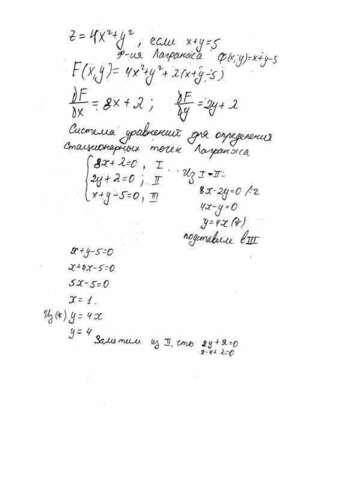 z = 4x²+y², если x+y=5
ф-ия Лагранжа Ф(x,y)=x+y-5
F(x,y)= 4x²+y²+λ(x+y-5)
∂F/∂x = 8x+λ; ∂F/∂y = 2y+λ
Система уравнений для определения
стационарных точек Лагранжа
8x+λ=0, I
2y+λ=0; II
x+y-5=0, III
Из I-II:
8x-2y=0 /:2
4x-y=0
y=4x (*)
подставим в III
x+y-5=0
x+4x-5=0
5x-5=0
x=1.
Из (*) y=4x
y=4
Заметим из II, что 2y+λ=0
2·4+λ=0